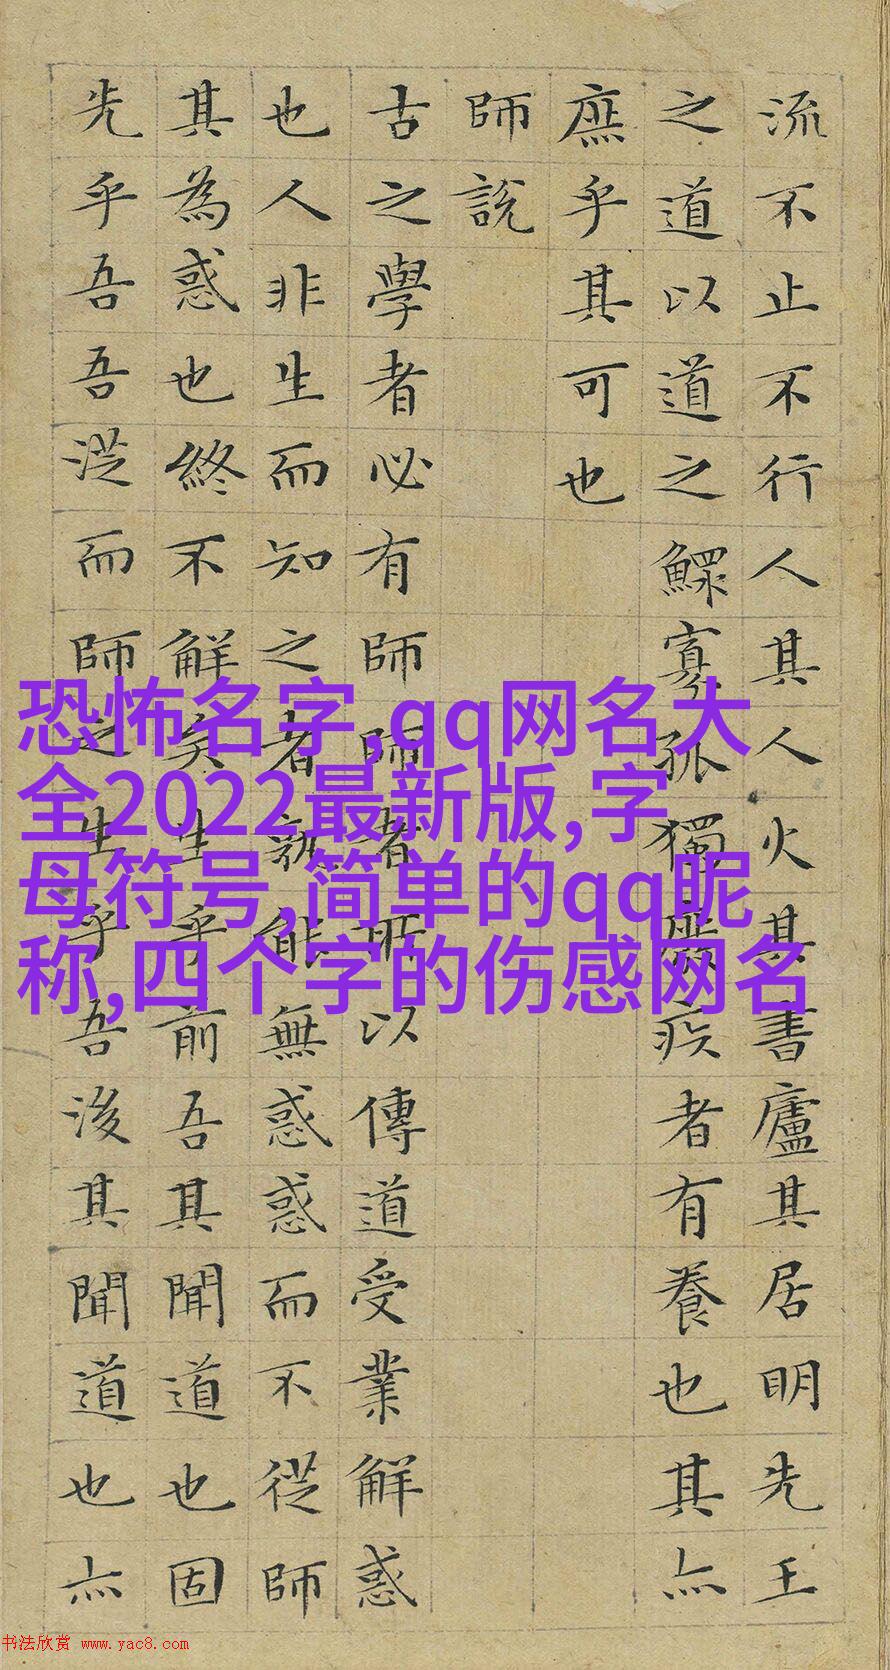 流不止不行人其人火其書廬其居明先王
之道以道之鰥寡孤獨廢疾者有養也其亦
庶乎其可也
師說
古之學者必有師師者所以傳道受業解惑
也人非生而知之者孰能無惑惑而不從師
其為惑也終不解矣生乎前吾其聞道也固
先乎吾吾從而師之生乎吾後其聞道也亦
恐怖名字,qq网名大
全2022最新版,字
母符号,简单的qq昵
称,四个字的伤感网名
书法欣赏 www.yac8.com